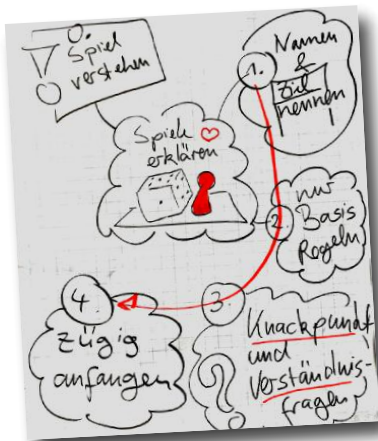 0.
Spiel
verstehen
Spiele
erklären
1.
Namen
&
Ziel
nennen
2.
nur
Basis
Regeln
3.
Knackpunkt
und
Verständnis-
fragen
?
4.
zügig
anfangen